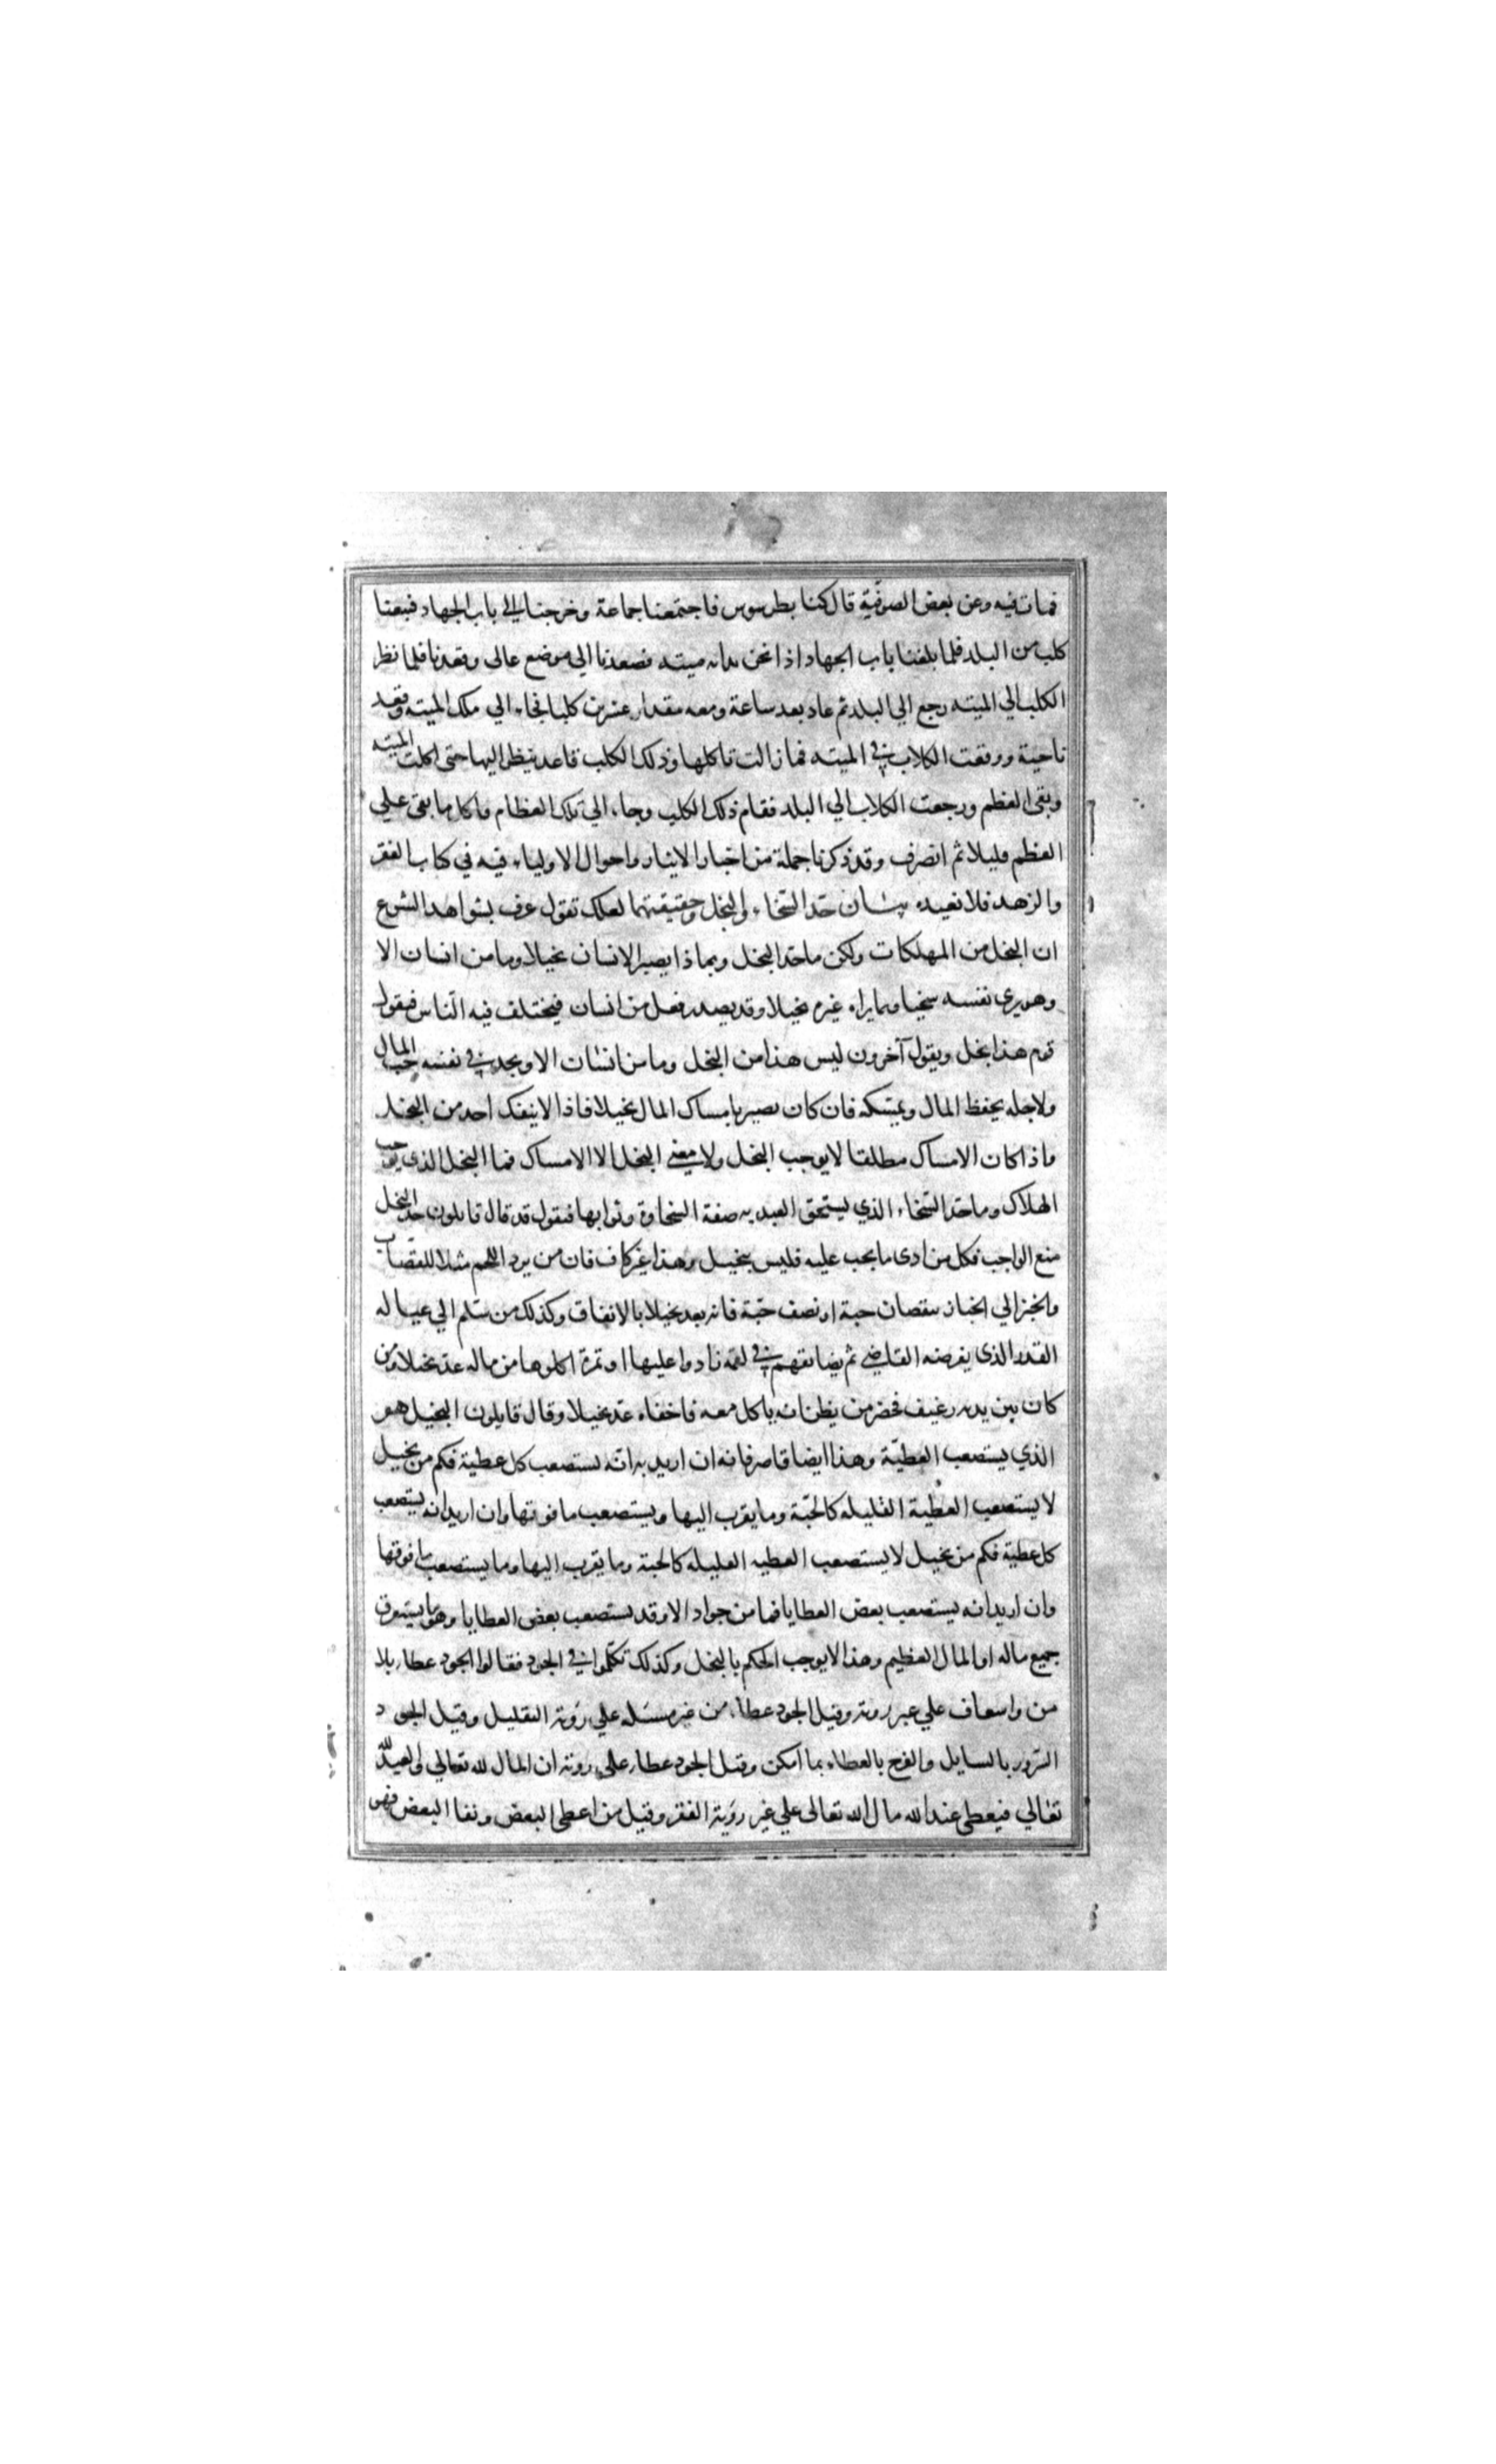 فمات فيه وعن بعض الصوفيّة قال كنا بطرسوس فاجتمعنا جماعة وخرجنا الي باب الجهاد فتبعنا
كلب من البلد فلما بلغنا باب الجهاد اذا نحن بدابه ميته فصعدنا الي موضع عالي وقعدنا فلما نظر
الكلب الي الميته رجع الي البلد ثم عاد بعد ساعة ومعه مقدار عشرين كلبا فجاء الي تلك الميته وقعد
ناحية ووقعت الكلاب في الميته فما زالت تاكلها وذلك الكلب قاعد ينظر اليها حتى اكلت الميته
وبقى العظم ورجعت الكلاب الي البلد فقام ذلك الكلب وجاء الي تلك العظام فاكل ما بقى علي
العظم قليلا ثم انصرف وقد ذكرنا جملة من اخبار الايثار واحوال الاولياء فيه في كتاب الفقر
والزهد فلا نعيده بيان حدّ السّخاء والبخل وحقيقتهما لعلك تقول عرف بشواهد الشرع
ان البخل من المهلكات ولكن ما حد البخل وبماذا يصير الانسان بخيلا وما من انسان الا
وهو يرى نفسه سخيا وربما يراه غيره بخيلا وقد يصدر فعل من انسان فيختلف فيه النّاس فيقول
قوم هذا بخل ويقول آخرون ليس هذا من البخل وما من انسان الا ويجد في نفسه حب المال
ولاجله يحفظ المال ويمسكه فان كان يصير بامساك المال بخيلا فاذا لا ينفك احد من البخل
واذا كان الامساك مطلقا لا يوجب البخل ولا معني البخل الا الامساك فما البخل الذي يوجب
الهلاك وما حد السّخاء الذي يستحق العبد به صفة السخاوة وثوابها فيقول قد قال قايلون حد البخل
منع الواجب فكل من ادى ما يجب عليه فليس ببخيل وهذا غير كاف فان من يرد اللحم مثلا للقصاب
والخبز الي الخباز بنقصان حبة او نصف حبّة فانه يعد بخيلا بالاتفاق وكذلك من سلم الي عياله
القدر الذي يفرضه القاضي ثم يضايقهم في لقمة زادوا عليها او تمرة اكلوها من ماله عدّ بخيلا ومن
كان بين يديه رغيف فحضر من يظن انه ياكل معه فاخفاه عدّ بخيلا وقال قايلون البخيل هو
الذي يستصعب العطيّة وهذا ايضا قاصر فانه ان اريد به انّه يستصعب كل عطية فكم من بخيل
لا يستصعب العطية القليله كالحبّة وما يقرب اليها ويستصعب ما فوقها وان اريد انه يستصعب
كل عطية فكم من بخيل لا يستصعب العطيه القليله كالحبة وما يقرب اليها وما يستصعب ما فوقها
وان اريد انه يستصعب بعض العطايا فما من جواد الا وقد يستصعب بعض العطايا وهو ما يستغرق
جميع ماله او المال العظيم وهذا لا يوجب الحكم بالبخل وكذلك تكلّموا في الجود فقالوا الجود عطاء بلا
من واسعاف علي غير روية وقيل الجود عطاء من غير مسئله علي رؤية التقليل وقيل الجود
السّرور بالسايل والفرح بالعطاء بما امكن وقيل الجود عطاء علي روية ان المال لله تعالي والعبد لله
تعالي فيعطي عبد الله مال الله تعالى علي غير رؤية الفقر وقيل من اعطى البعض ونفا البعض فهو